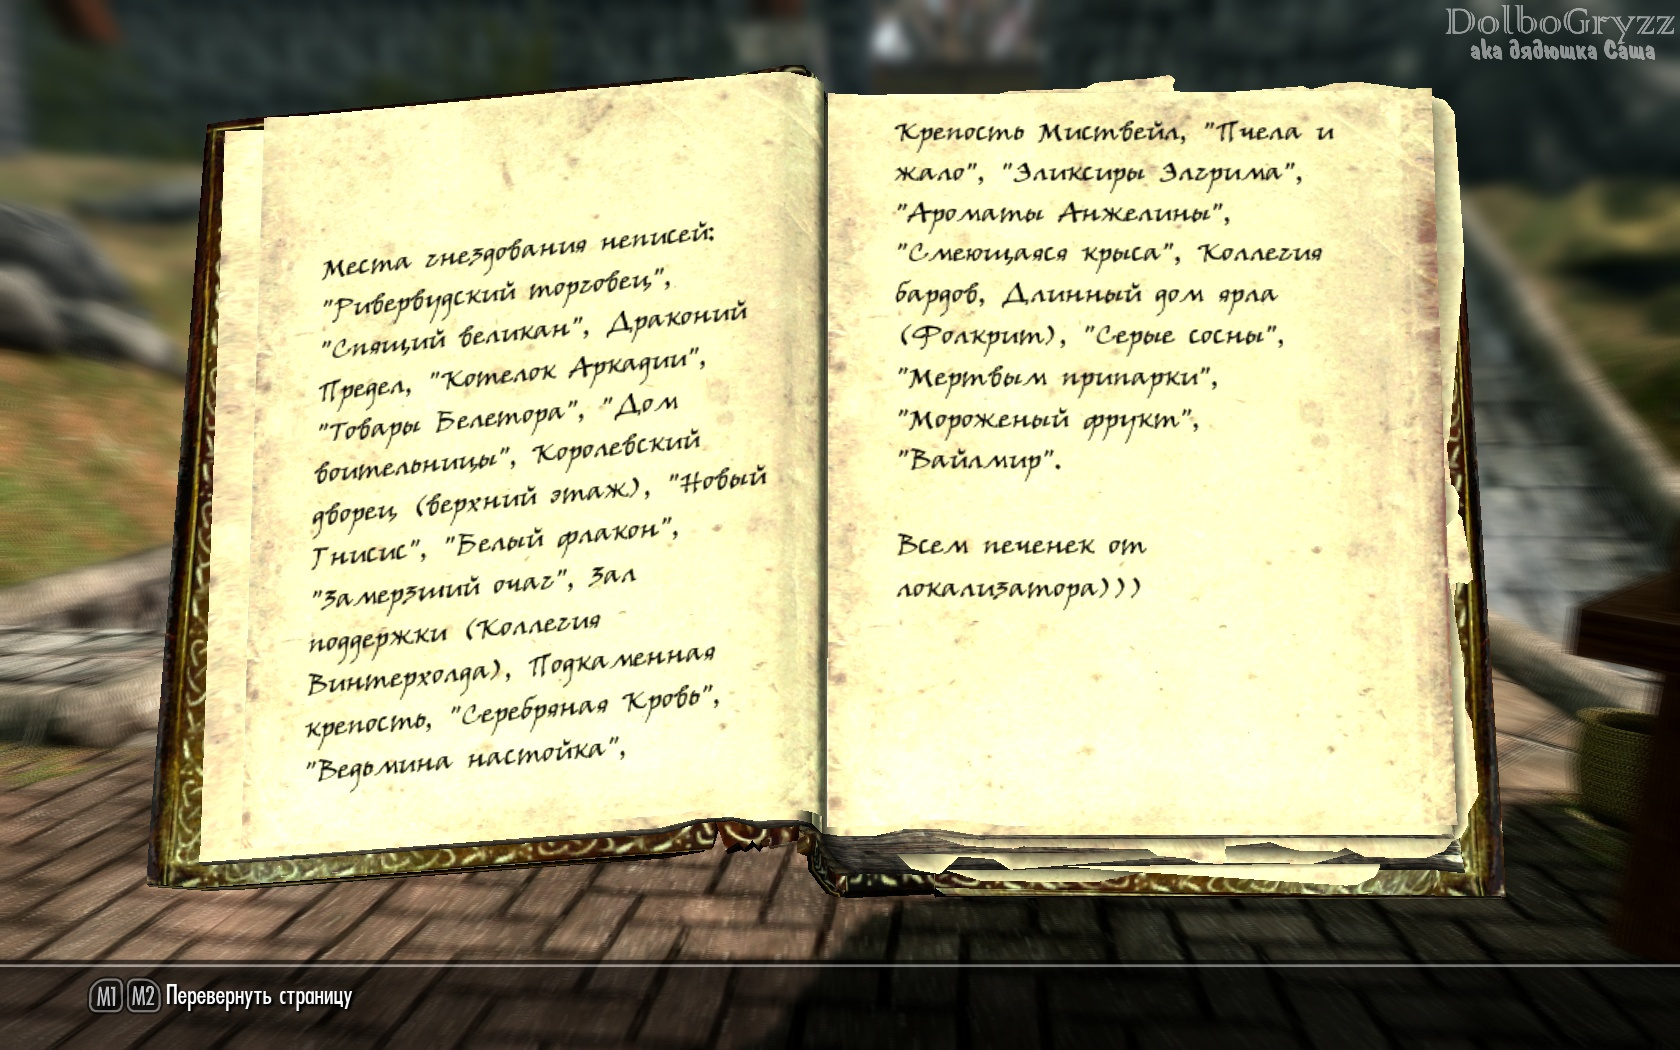 DolboGryzz
aka дядюшка Саша
Места гнездования неписей:
"Ривервудский торговец",
"Спящий великан", Драконий
Предел, "Котелок Аркадии",
"Товары Белетора", "Дом
воительницы", Королевский
дворец (верхний этаж), "Новый
Гнисис", "Белый флакон",
"Замерзший очаг", Зал
поддержки (Коллегия
Винтерхолда), Подкаменная
крепость, "Серебряная Кровь",
"Ведьмина настойка",
Крепость Миствейл, "Пчела и
жало", "Эликсиры Элгрима",
"Ароматы Анжелины",
"Смеющаяся крыса", Коллегия
бардов, Длинный дом ярла
(Фолкрит), "Серые сосны",
"Мертвым припарки",
"Мороженый фрукт",
"Вайлмир".
Всем печенек от
локализатора)))
M1 M2 Перевернуть страницу